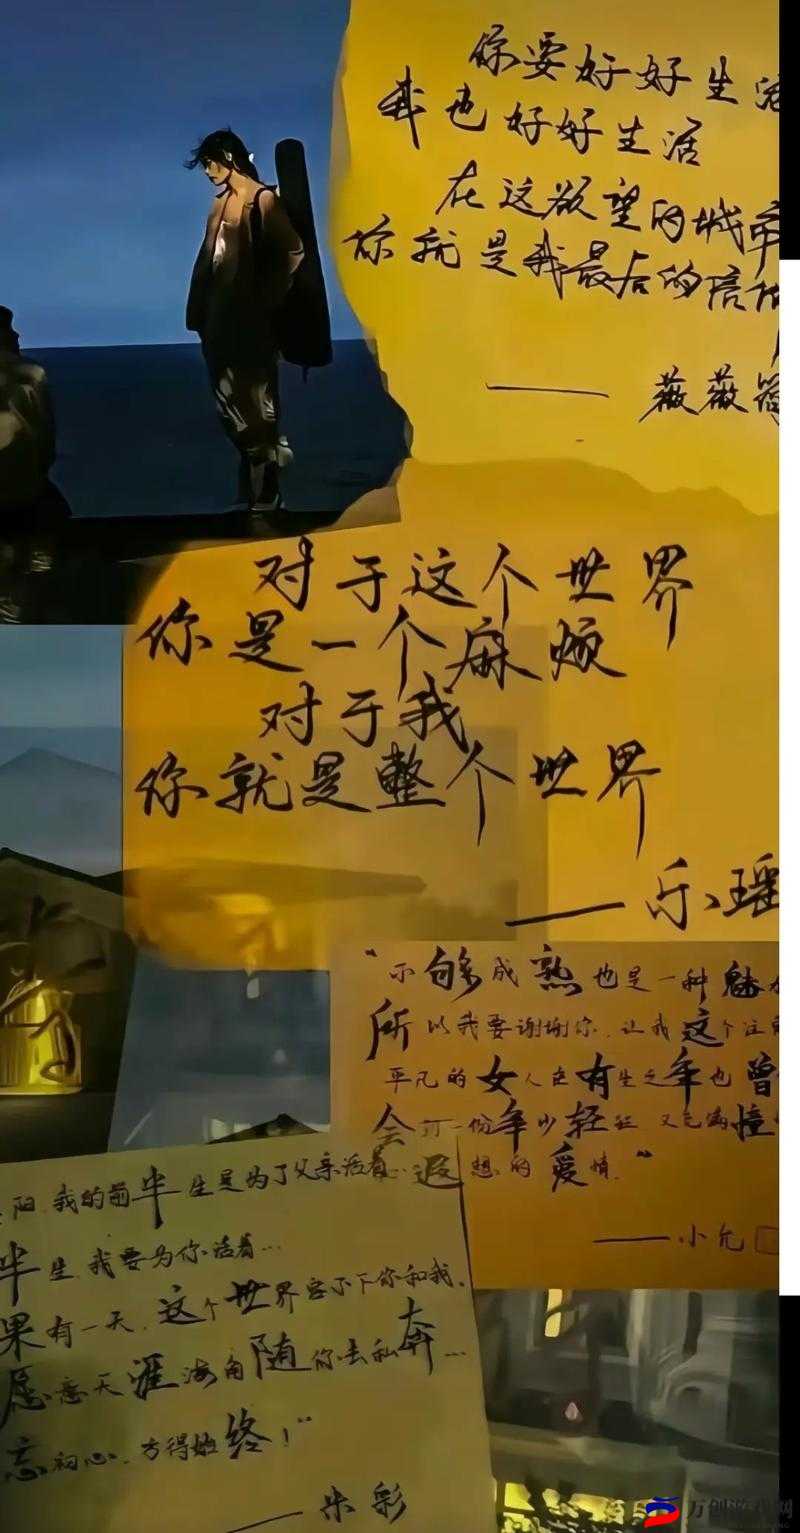 你要好好生活
我也好好生活
在这欲望的城市
你就是我最后的信仰
——薇薇
对于这个世界
你是一个麻烦
对于我
你就是整个世界
——乐瑶
“不够成熟也是一种魅
所以我要谢谢你.让我这个注
平凡的女人在有生之年也曾
会有一份年少轻狂又充满憧
遐想的爱情.”
——小允
阳.我的前半生是为了父亲活着..
半生.我要为你活着...
果有一天.这个世界容不下你和我.
愿意天涯海角随你去私奔...
忘初心.方得始终！”
——米彩
万创游戏网